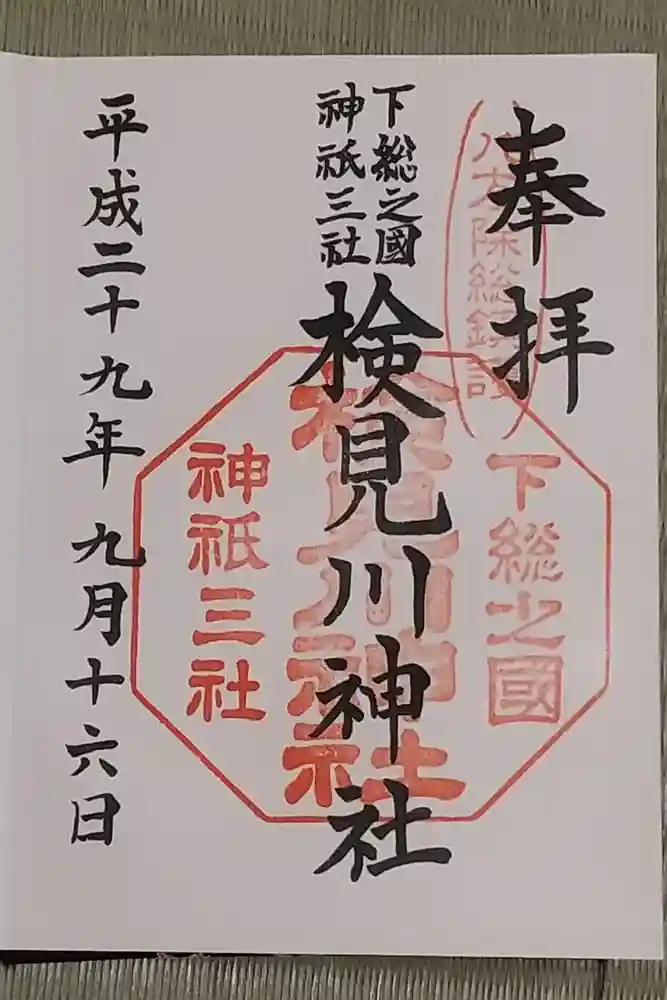 奉拝
八方除総鎮護
下総之國
神祇三社
検見川神社
下総之國
検見川神社
神祇三社
平成二十九年九月十六日